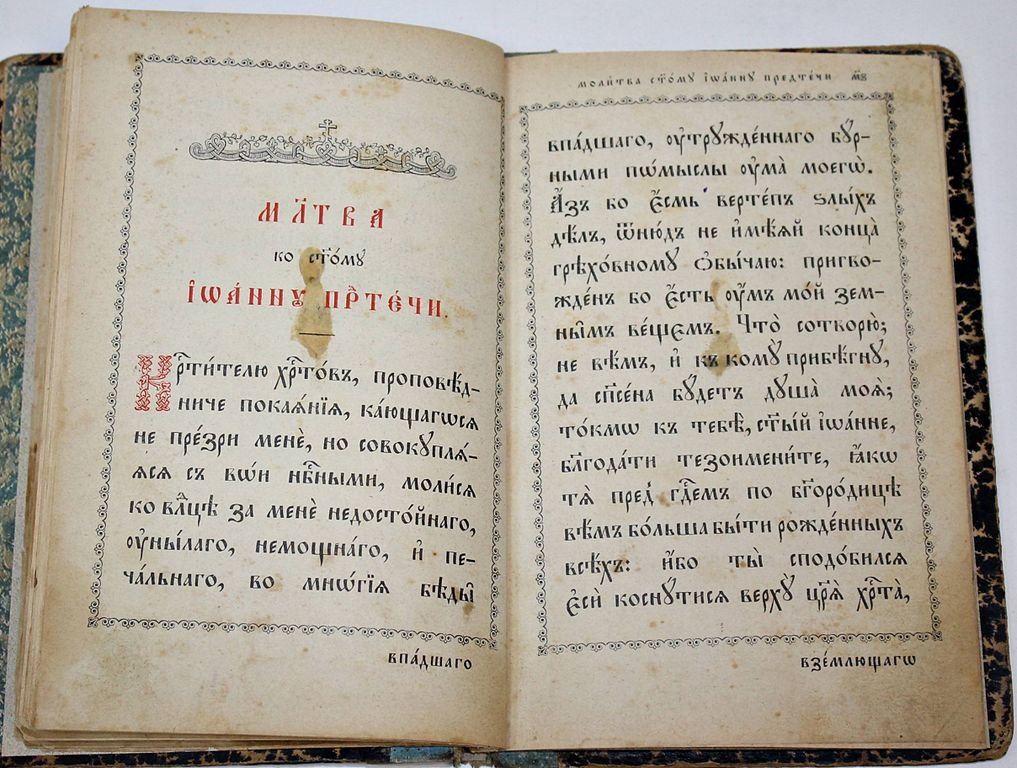 МЛ҃ТВА
ко ст҃о́мꙋ
І҆ѠА́ННꙊ ПРⷣТЕ́ЧИ.
Крⷭ҇ти́телю хрⷭ҇то́въ, проповѣ́д-
ниче покаѧ́нїѧ, ка́ющагосѧ
не пре́зри менѐ, но совокꙋплѧ́-
ѧсѧ съ вѡ́и нбⷭ҇ными, моли́сѧ
ко влⷣцѣ за менѐ недосто́йнаго,
оу҆ны́лаго, немощна́гѡ, и҆ пе-
ча́льнаго, во мнѡ́гїѧ бѣды̑
впа́дшаго
моли́тва ст҃о́мꙋ і҆ѡа́ннꙋ предте́чи м҃ѕ
впа́дшаго, оу҆трꙋжде́ннаго бꙋ́р-
ными по́мыслы оу҆ма̀ моегѡ̀.
А҆́зъ бо є҆́смь верте́пъ ѕлы́хъ
дѣ́лъ, ѿню́дъ не и҆мѣ́ѧй конца̀
грѣхо́вномꙋ ѻ҆бы́чаю: пригво-
жде́нъ бо є҆́сть оу҆́мъ мо́й зем-
ны̑мъ ве́щємъ. Что̀ сотворю̀;
не вѣ́мъ, и҆ къ комꙋ̀ прибѣ́гнꙋ,
да сп҃се́на бꙋ́детъ дꙋша̀ моѧ̀;
то́кмѡ къ тебѣ̀, ст҃ы́й і҆ѡа́нне,
блгⷣода́ти тезоимени́те, ꙗ҆́кѡ
тѧ̀ пред̾ гдⷭ҇емъ по бг҃оро́дицѣ
вѣ́мъ бо́льша бы́ти рожде́нныхъ
всѣ́хъ: и҆́бо ты̀ сподо́билсѧ
є҆сѝ коснꙋ́тисѧ верхꙋ̀ цр҃ѧ̀ хрⷭ҇та̀,
взе́млющагѡ